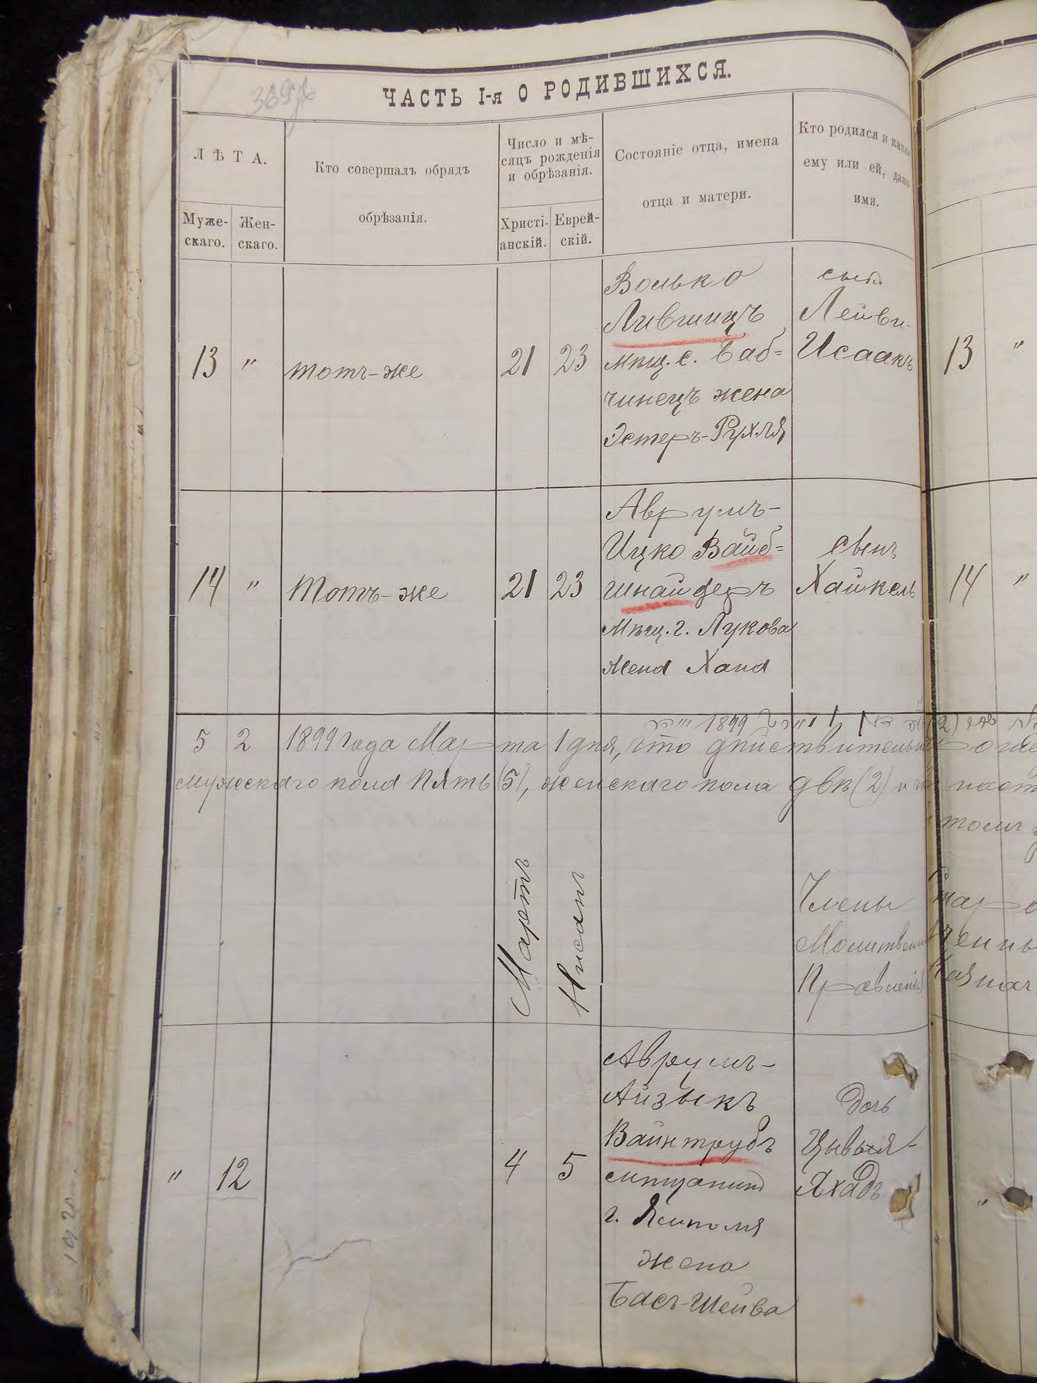 ЧАСТЬ I-я О РОДИВШИХСЯ.
ЛѢТА.
Муже-
скаго.
Жен-
скаго.
Кто совершалъ обрядъ
обрѣзанія.
Число и мѣ-
сяцъ рожденія
и обрѣзанія.
Христі-
анскій.
Еврей-
скій.
Состояніе отца, имена
отца и матери.
Кто родился и какое
ему или ей, дано
имя.
13 " тотъ-же 21 23
Волько
Лившицъ
мѣщ. с. Баб=
чинецъ жена
Эстеръ-Рухля
сынъ
Лейви-
Исаакъ
13 "
14 " Тотъ-же 21 23
Аврумъ-
Ицко Вайс=
шнайдеръ
Мѣщ. г. Лукова
жена Хана
сынъ
Хайкель
14 "
5 2 1899 года Марта 1 дня, что дѣйствительно
мужскаго пола пять (5), женскаго пола двѣ (2)
Мартъ
Нисанъ
Члены
Молитвен
Правленія
" 12 4 5
Аврумъ-
Айзыкъ
Вайнтрубъ
мѣщанинъ
г. Ямполя
жена
Бася-Шейва
дочь
Цывья-